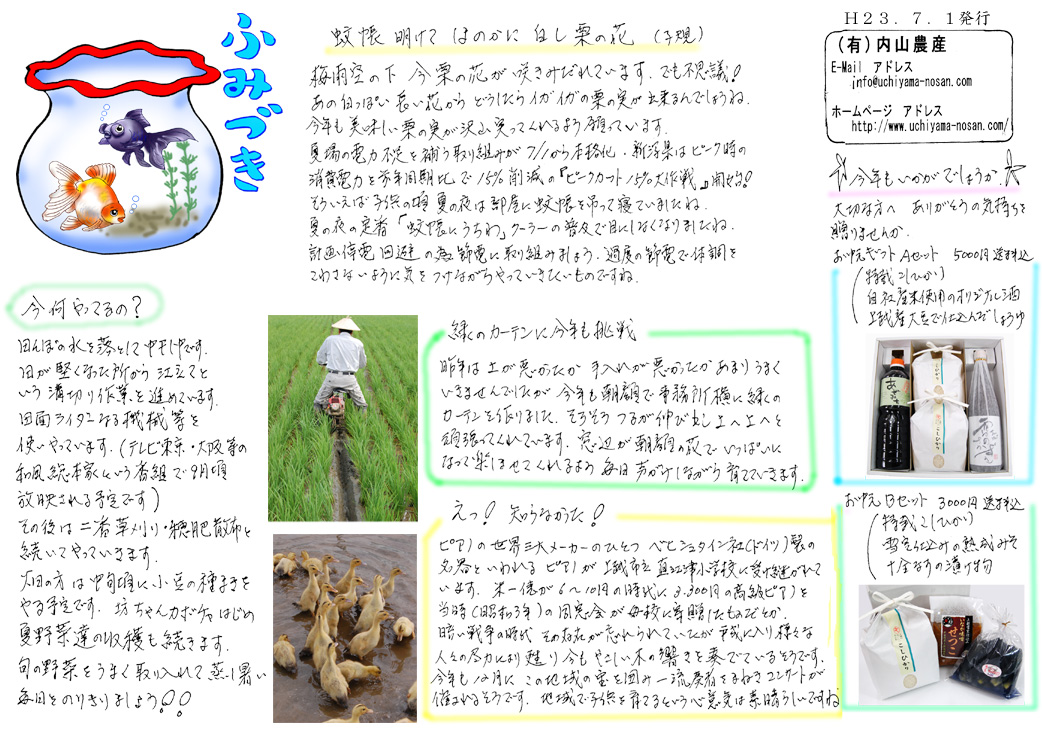 ふみづき
蚊帳明けて ほのかに白し栗の花 (子規)
梅雨空の下 今栗の花が咲きみだれています。でも不思議!
あの白っぽい長い花から どうしたらイガイガの栗の実が出来るんでしょうね.
今年も美味しい栗の実が沢山実ってくれるよう願っています.
夏場の電力不足を補う取り組みが7/1から本格化・新潟県はピーク時の
消費電力を前年同期比で15%削減の『ピークカット15%大作戦』開始!
そういえば子供の頃 夏の夜は部屋に蚊帳を吊って寝ていましたね.
夏の夜の定番 「蚊帳にうちわ」クーラーの普及で目にしなくなりましたね.
計画停電回避の為節電に取り組みましょう. 過度の節電で体調を
こわさないように気をつけながらやっていきたいものですね.
H23.7.1発行
(有)内山農産
E-Mail アドレス
info@uchiyama-nosan.com
ホームページ アドレス
http://www.uchiyama-nosan.com/
今年もいかがでしょうか
大切な方へ ありがとうの気持ちを
贈りませんか.
お中元ギフト Aセット 5000円送料込
(特栽こしひかり
自社産米使用のオリジナル酒
上越産大豆で仕込んだしょうゆ
お中元Bセット 3000円送料込
(特栽こしひかり
雪室仕込みの熟成みそ
十全なすの漬け物
今何やってるの?
田んぼの水を落として中干し中です.
田が堅くなった所から 江立てと
いう溝切り作業を進めています.
田面ライダーなる機械等を
使いやっています.(テレビ東京・大阪等の
和風総本家という番組で9月頃
放映される予定です)
その後は二番草刈り・穂肥散布と
続いてやっていきます.
大畑の方は中旬頃に小豆の種まきを
やる予定です. 坊ちゃんカボチャはじめ
夏野菜達の収穫も続きます.
旬の野菜をうまく取り入れて蒸し暑い
毎日をのりきりましょう!!
緑のカーテンに今年も挑戦
昨年は土が悪かったか手入れが悪かったか あまりうまく
いきませんでしたが 今年も朝顔で事務所横に緑の
カーテンを作りました. そろそろつるが伸び出し上へ上へと
頑張ってくれています. 窓辺が朝顔の花でいっぱいに
なって楽しませてくれるよう 毎日声かけしながら育てていきます.
えっ! 知らなかった!
ピアノの世界三大メーカーのひとつ ベヒシュタイン社(ドイツ)製の
名器といわれるピアノが上越市立直江津小学校に受け継がれて
います. 米一俵が6〜10円の時代に3.300円の高級ピアノを
当時(昭和3年)の同窓会が母校に寄贈したものだとか.
暗い戦争の時代 その存在が忘れられていたが 平成に入り様々な
人々の尽力により甦り今もやさしい木の響きを奏でているそうです.
今年も12月に この地域の宝を囲み一流奏者をまねきコンサートが
催されるそうです. 地域で子供を育てるという心意気は素晴らしいですね